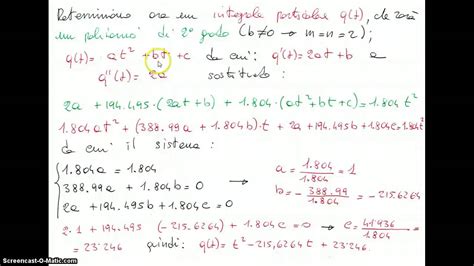 Determiniamo ora un integrale particolare q(t), che sarà
un polinomio di 2° grado (b≠0 → m=n=2);
q(t) = at² + bt + c da cui: q'(t) = 2at + b e
q''(t) = 2a sostituendo:
2a + 194.495·(2at+b) + 1.804·(at²+bt+c) =
1.804at² + (388.99a + 1.804b)·t + 2a + 194.495b + 1.804c = 1.804t²
da cui il sistema:
1.804a = 1.804
388.99a + 1.804b = 0
2a + 194.495b + 1.804c = 0
a = 1.804/1.804 = 1
b = - 388.99/1.804 = -215.6264
2·1 + 194.495·(-215.6264) + 1.804c = 0 → c = 41936/1.804 =
= 23'246 quindi: q(t) = t² - 215,6264t + 23246.
Screencast-O-Matic.com